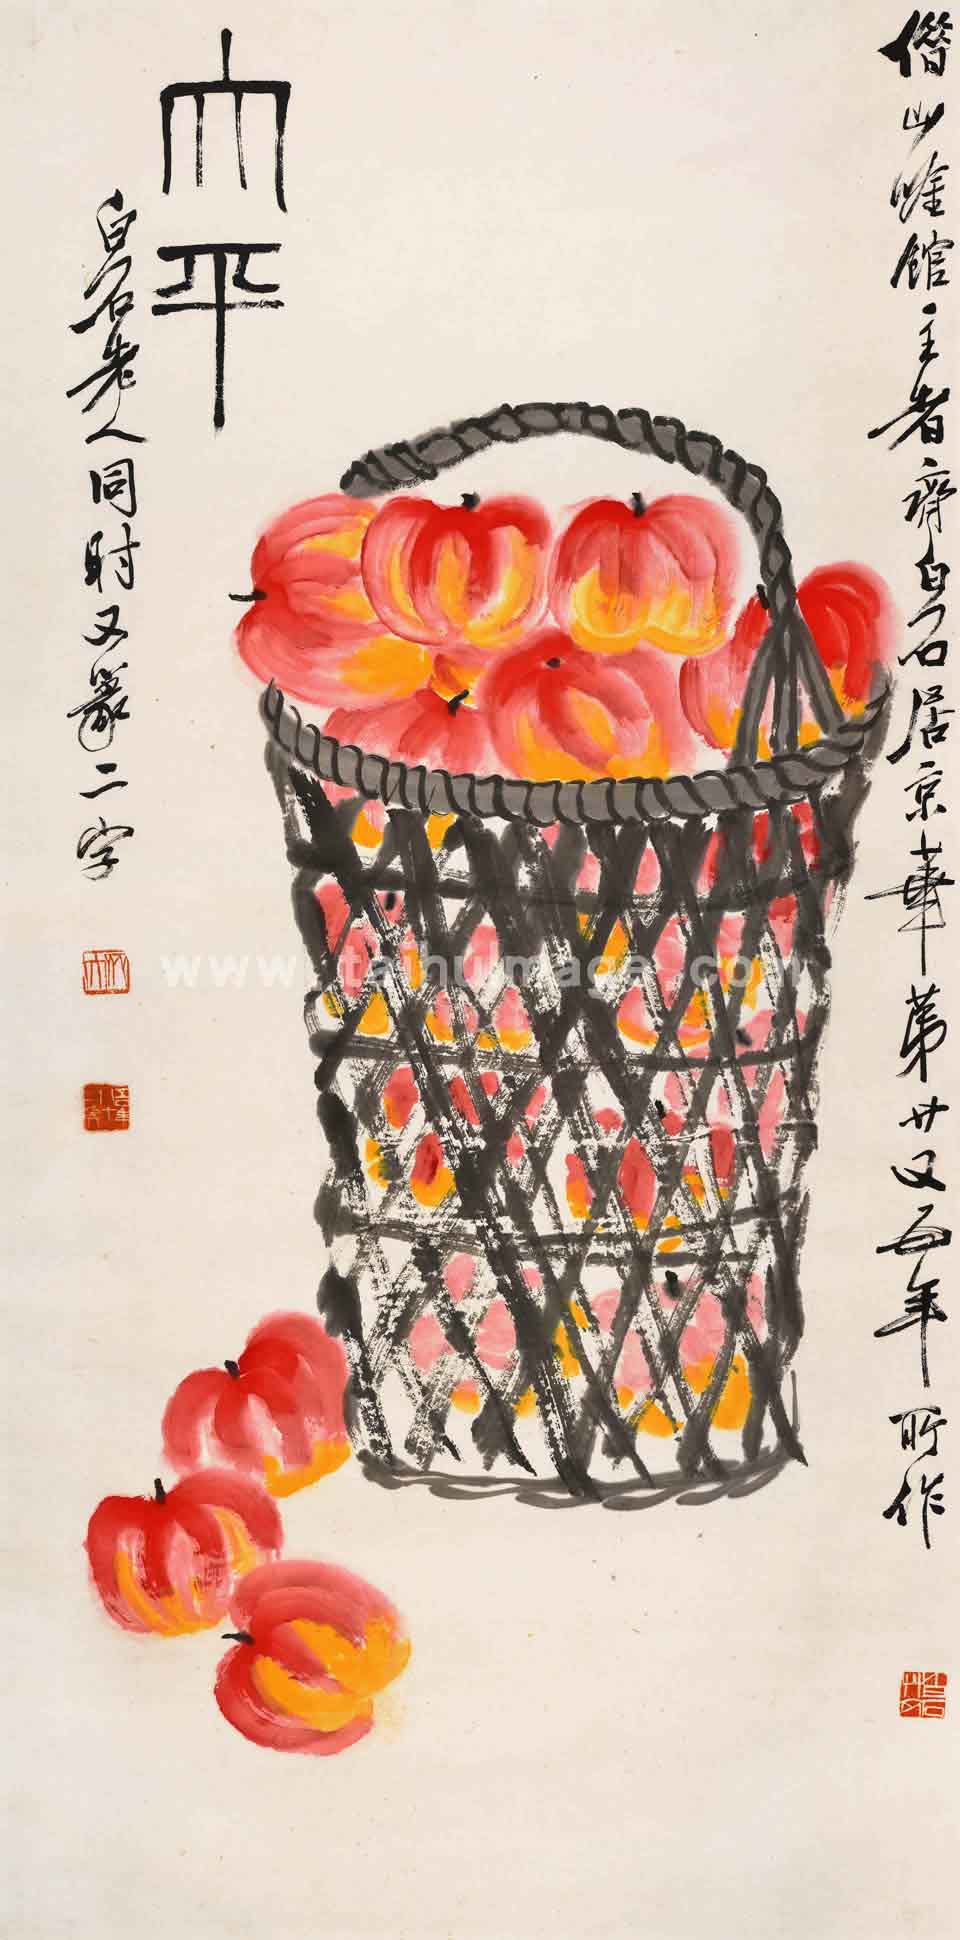 借山唫館主者齊白石居京華第廿又五年所作
大平
白石老人同时又篆二字
www.taihuimage.com